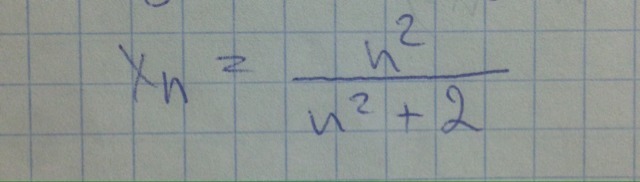 xₙ = n²/(n² + 2)